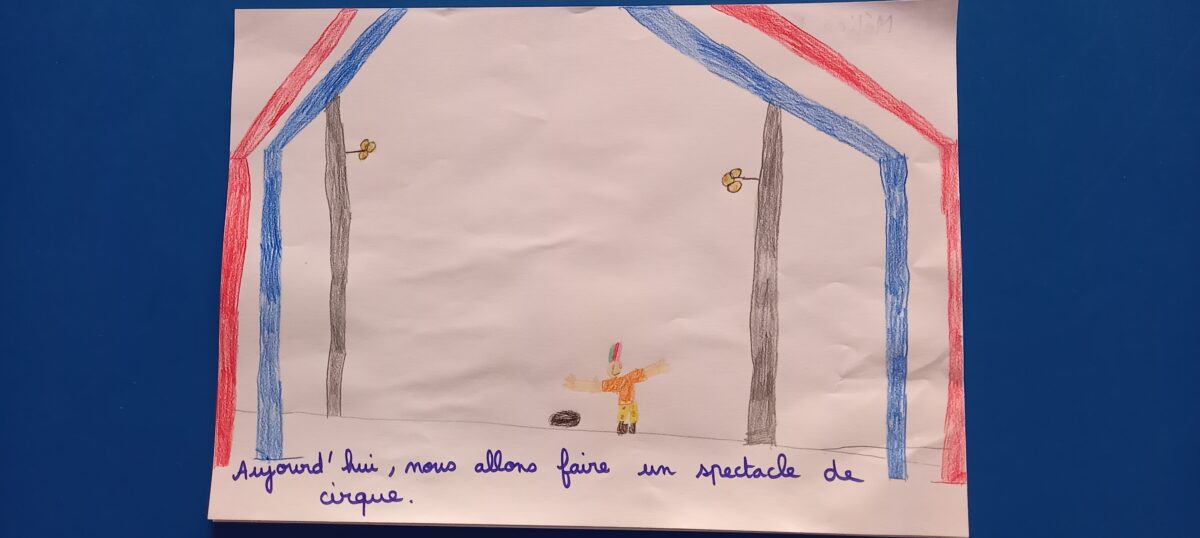 Aujourd'hui, nous allons faire un spectacle de
cirque.